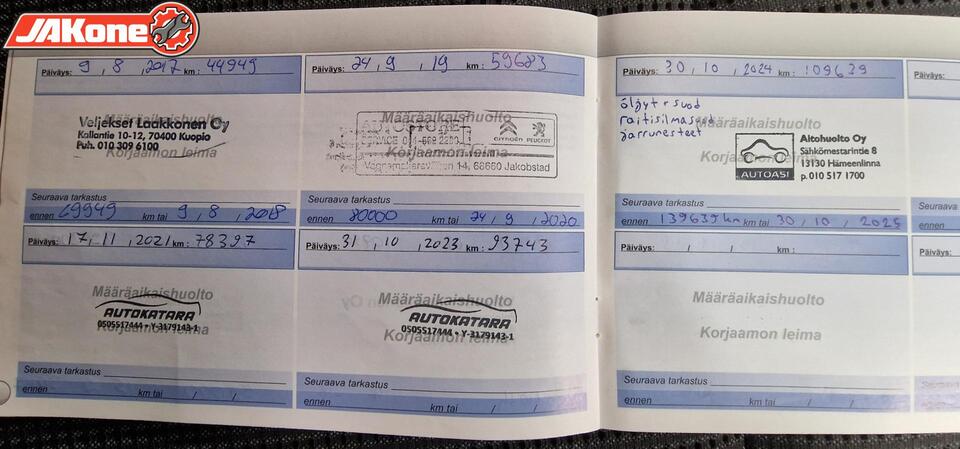 JAKone
Päiväys: 9 , 8 , 2017 km: 44949
Määräaikaishuolto
Veljekset Laakkonen Oy
Kallantie 10-12, 70400 Kuopio
Puh. 010 309 6100
Korjaamon leima
Seuraava tarkastus
ennen 69949 km tai 9 , 8 , 2018
Päiväys: 24 , 9 , 19 km: 59683
Määräaikaishuolto
CITROËN PEUGEOT
Korjaamon leima
14, 68660 Jakobstad
Seuraava tarkastus
ennen 80000 km tai 24 , 9 , 2020
Päiväys: 17 , 11 , 2021 km: 78397
Määräaikaishuolto
AUTOKATARA
0505517444 • Y-3179143-1
Korjaamon leima
Seuraava tarkastus
ennen km tai / /
Päiväys: 31 , 10 , 2023 km: 93743
Määräaikaishuolto
AUTOKATARA
0505517444 • Y-3179143-1
Korjaamon leima
Seuraava tarkastus
ennen km tai / /
Päiväys: 30 , 10 , 2024 km: 109639
öljyt + suod
raitisilmasuod
jarrunesteet
Määräaikaishuolto
Korjaamon leima
AUTOASI
Altohuolto Oy
Sähkömestarintie 8
13130 Hämeenlinna
p.010 517 1700
Seuraava tarkastus
ennen 139639 km km tai 30 , 10 , 2025
Päiväys: / / km:
Määräaikaishuolto
Korjaamon leima
Seuraava tarkastus
ennen km tai / /
Päiväys:
Seuraava
ennen
Päiväys:
Seuraava
ennen